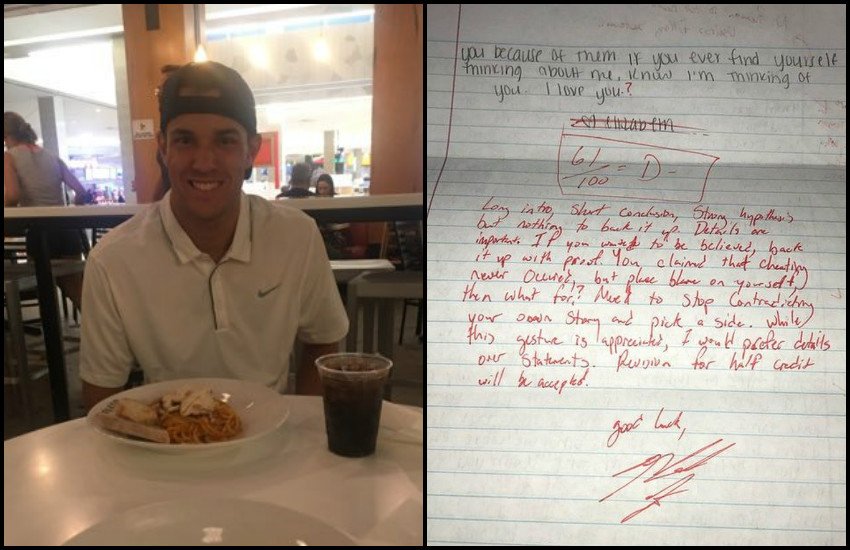 you because of them if you ever find yourself
thinking about me, know I'm thinking of
you. I love you.?
61/100 = D-
Long intro, short conclusion, Strong hypothesis
but nothing to back it up. Details are
important. If you want to be believed, back
it up with proof. You claimed that cheating
never occurred, but place blame on yourself,
then what for? Need to stop contradicting
your own story and pick a side. While
this gesture is appreciated, I would prefer details
over statements. Revision for half credit
will be accepted.
good luck,